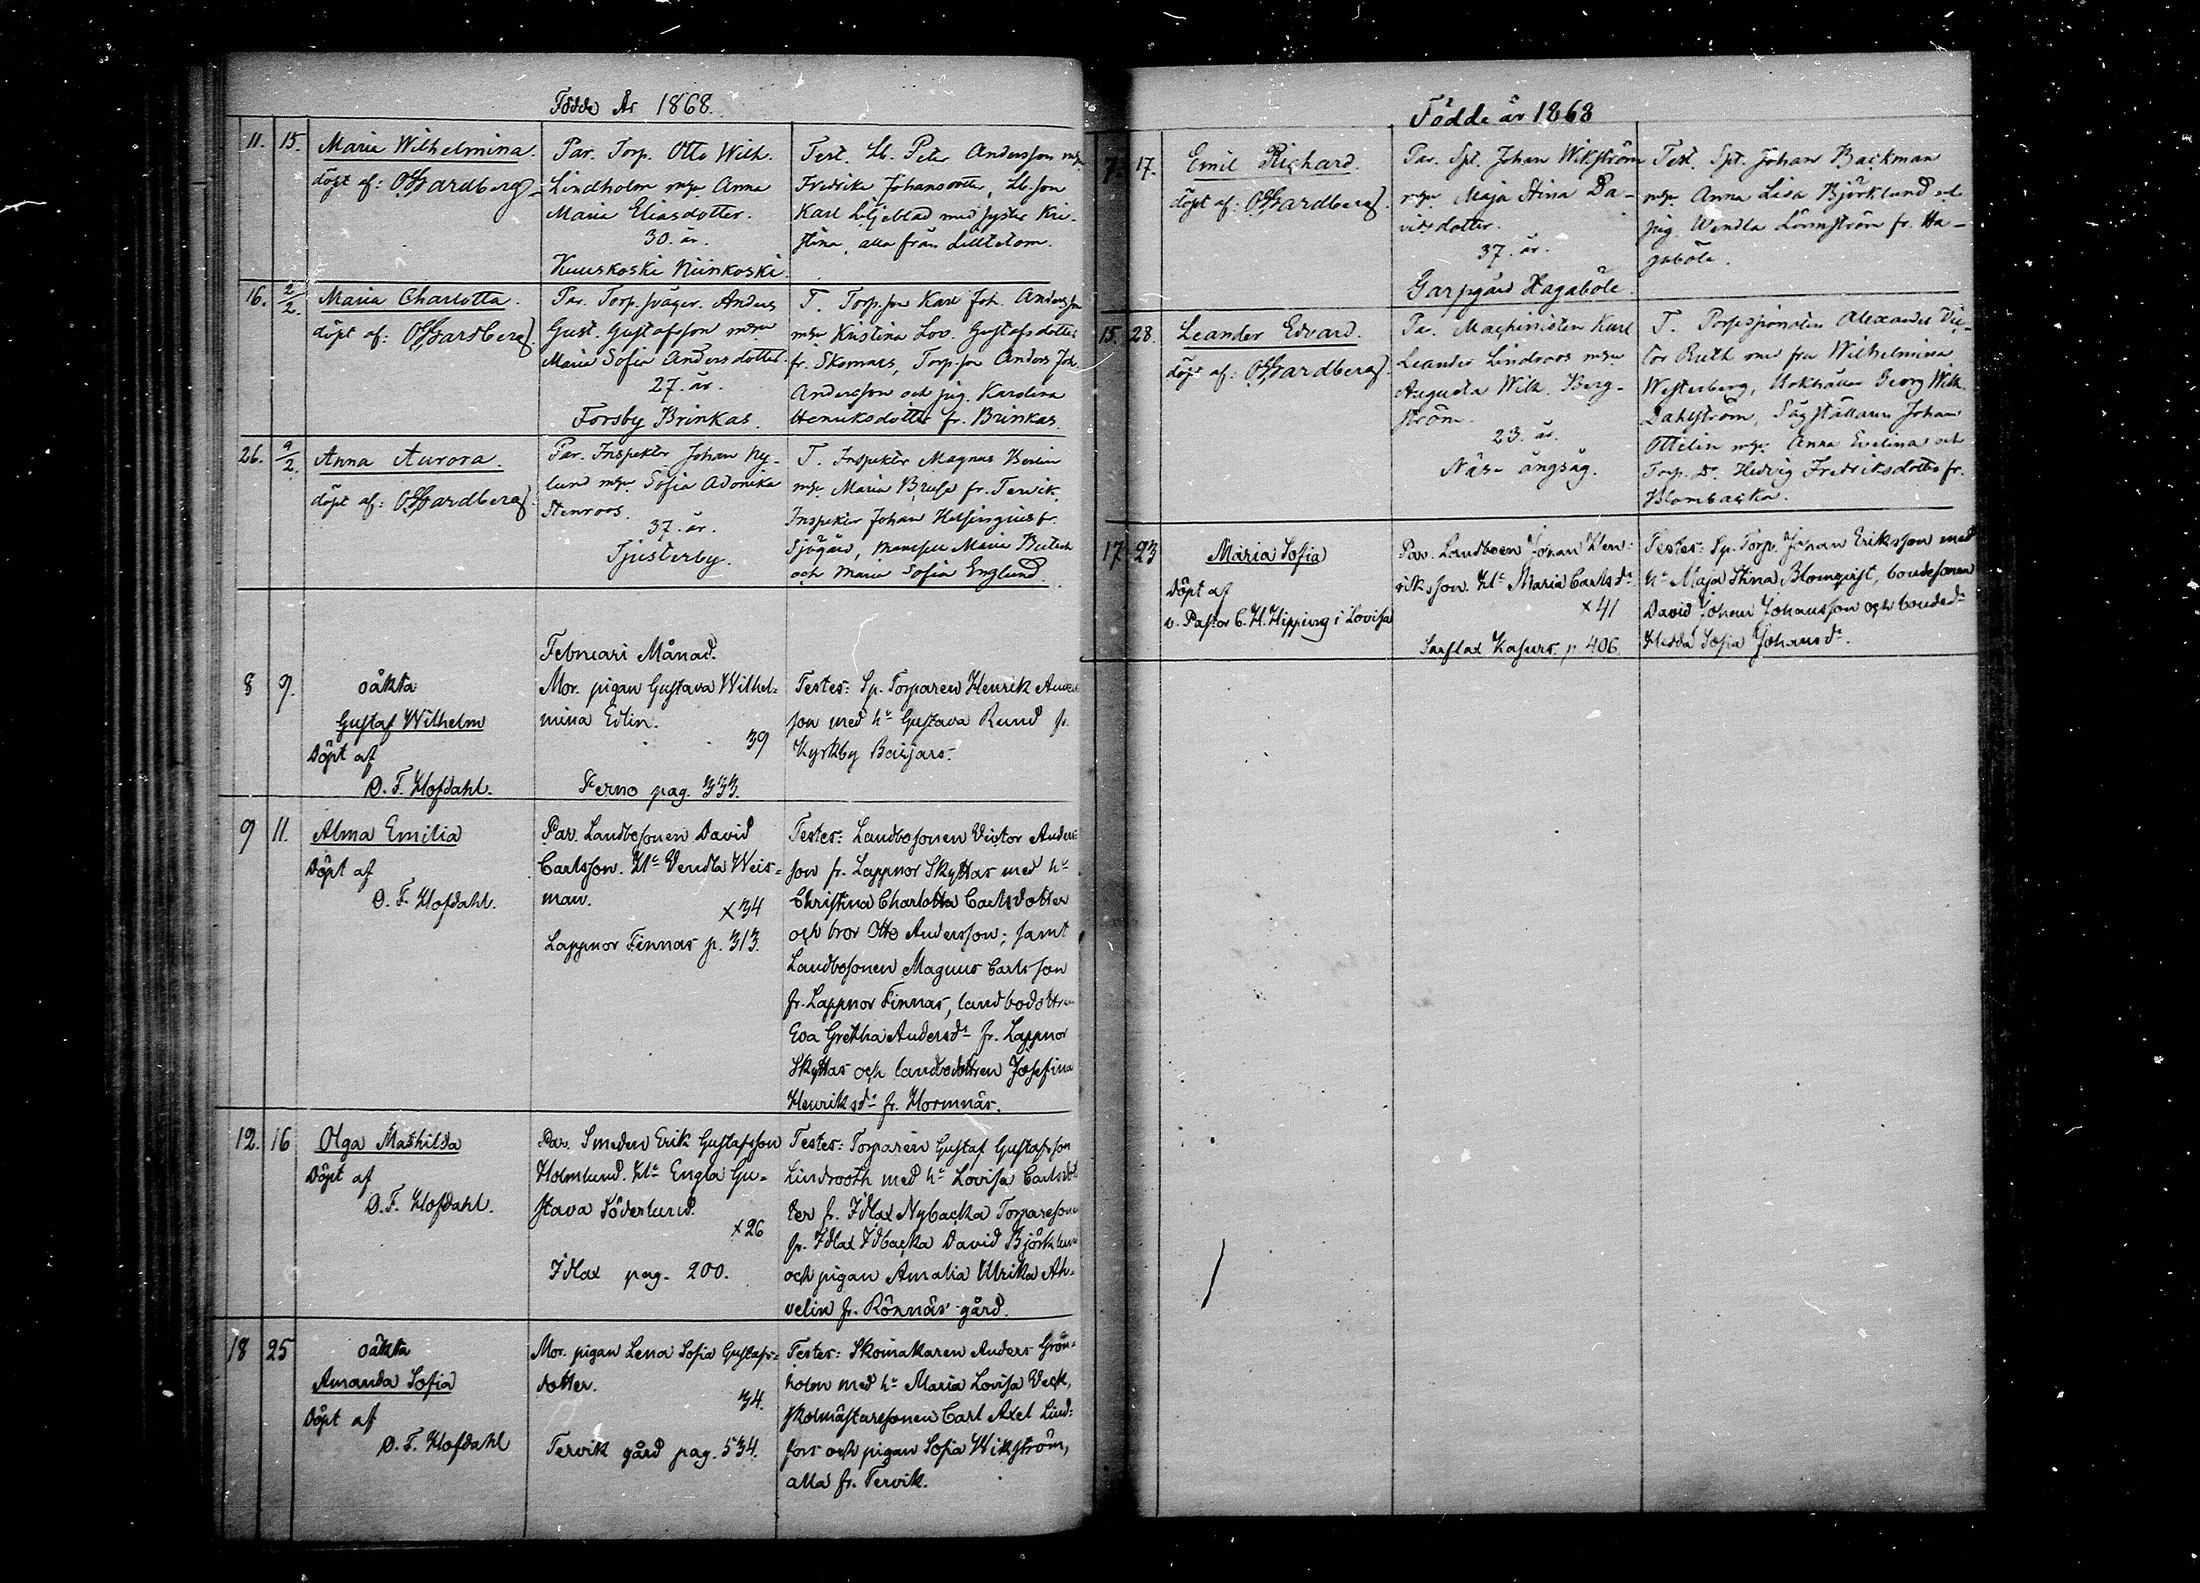 Födde År 1868.
11. 15. Maria Wilhelmina.
döpt af:
Par. Torp. Otto Wilh.
Lindholm m. Anna
Maria Eliasdotter.
30. år.
Kuuskoski Niinkoski.
Test. Lb. Peter Andersson
Fredrika Johansdotter, Lb.son
Karl Liljeblad med syster Kri-
stina, alla från Lilltetom.
16. 2/2. Maria Charlotta.
döpt af:
Par. Torp.sväger. Anders
Gust. Gustafsson
Maria Sofia Andersdotter.
27. år.
Forsby Brinkas.
T. Torp.son Karl Joh. Andersson
Kristina Lov. Gustafsdotter
fr. Skomars, Torp.son Anders Joh.
Andersson och pig. Karolina
Henriksdotter fr. Brinkas.
26. 9/2. Anna Aurora.
döpt af:
Par. Inspektor Johan Ny-
lund Sofia Adonika
Stenroos.
37. år.
Tjusterby.
T. Inspektor Magnus
Maria fr. Tervik.
Inspektor Johan Helsingius fr.
Sjögård, Mamsell Maria
och Maria Sofia Englund.
Februari Månad.
8 9. oäkta
Gustaf Wilhelm
Döpt af
O. F. Hofdahl.
Mor. pigan Gustava Wilhel-
mina Edlin.
39
Perno pag. 333.
Testes: Sp. Torparen Henrik
son med h. Gustava Rund fr.
Kyrkby Baijars.
9 11. Alma Emilia
Döpt af
O. F. Hofdahl.
Par. Landbosonen David
Carlsson. H. Vendla Weis-
man.
x34
Lappnor Finnas p. 313.
Testes: Landbosonen Victor Anders-
son fr. Lappnor Skyttas med h.
Christina Charlotta Carlsdotter
och bror Otto Andersson; samt
Landbosonen Magnus Carlsson
fr. Lappnor Finnas, landbodottren
Eva Gretha Andersd. fr. Lappnor
Skyttas och landbodottren Josefina
Henriksd. fr. Hormnäs.
12. 16 Olga Mathilda
Döpt af
O. F. Hofdahl.
Par. Smeden Erik Gustafsson
Holmlund. H. Engla Gu-
stava Söderlund.
x26
Idlax pag. 200.
Testes: Torparen Gustaf Gustafsson
Lindrooth med h. Lovisa Carlsdot
ter fr. Idlax Nybacka Torpareson
fr. Idlax Idbacka David Björklund
och pigan Amalia Ulrika Ah-
velin fr. Rönnäs gård.
18 25 oäkta
Amanda Sofia
Döpt af
O. F. Hofdahl
Mor. pigan Lena Sofia Gustafs-
dotter.
34.
Tervik gård pag. 534.
Testes: Skomakaren Anders Grön-
holm med h. Maria Lovisa Veck,
skolmästaresonen Carl Axel Lind-
fors och pigan Sofia Wikström,
alla fr. Tervik.
Födde år 1868
7. 17. Emil Richard.
döpt af:
Par. Spt. Johan Wikström
Maja Stina Da-
vidsdotter.
37. år.
Garpgård Hagaböle.
Test. Spt. Johan Backman
Anna Lisa Björklund och
pig. Wendla Lönnström fr. Ha-
gaböle.
15. 28. Leander Edvard.
döpt af:
Par. Machinisten Karl
Leander Lindroos
Augusta Wilh. Berg-
ström.
23. år.
Näse ångsåg.
T. Possessionaten Alexander Vic-
tor Ruth med fru Wilhelmina
Westerberg, Bokhållar Georg Wilh.
Dahlström, Sågställaren Johan
Ottelin Anna Evelina och
Torp. Dr. Hedvig Fredriksdotter fr.
Blombacka.
17 23 Maria Sofia
Döpt af
v. Pastor C. H. Hipping i Lovisa
Par. Landboen Johan Hen-
riksson. H. Maria Carlsdr.
x41
Sarflax Kasurs. p. 406.
Testes: Sp. Torp. Johan Eriksson med
h. Maja Stina Blomqvist, bondesonen
David Johan Johansson och bonded.
Hedda Sofia Johansd.